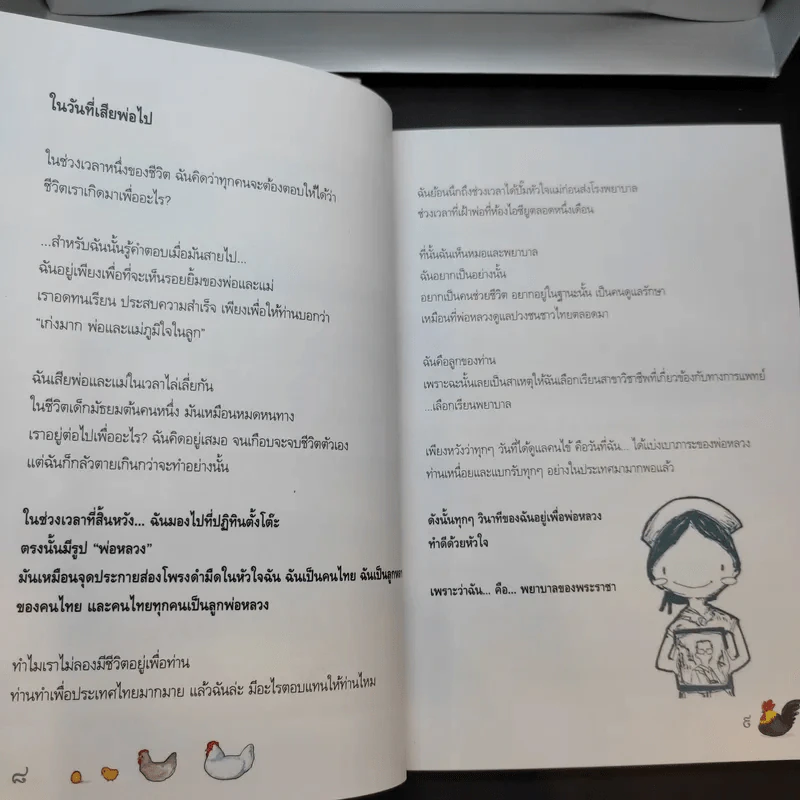 ในวันที่เสียพ่อไป
ในช่วงเวลาหนึ่งของชีวิต ฉันคิดว่าทุกคนจะต้องตอบให้ได้ว่า
ชีวิตเราเกิดมาเพื่ออะไร?
...สำหรับฉันนั้นรู้คำตอบเมื่อมันสายไป...
ฉันอยู่เพียงเพื่อที่จะเห็นรอยยิ้มของพ่อและแม่
เราอดทนเรียน ประสบความสำเร็จ เพียงเพื่อให้ท่านบอกว่า
“เก่งมาก พ่อและแม่ภูมิใจในลูก”
ฉันเสียพ่อและแม่ในเวลาไล่เลี่ยกัน
ในชีวิตเด็กมัธยมต้นคนหนึ่ง มันเหมือนหมดหนทาง
เราอยู่ต่อไปเพื่ออะไร? ฉันคิดอยู่เสมอ จนเกือบจะจบชีวิตตัวเอง
แต่ฉันก็กลัวตายเกินกว่าจะทำอย่างนั้น
ในช่วงเวลาที่สิ้นหวัง... ฉันมองไปที่ปฏิทินตั้งโต๊ะ
ตรงนั้นมีรูป “พ่อหลวง”
มันเหมือนจุดประกายส่องโพรงดำมืดในหัวใจฉัน ฉันเป็นคนไทย
ของคนไทย และคนไทยทุกคนเป็นลูกพ่อหลวง
ทำไมเราไม่ลองมีชีวิตอยู่เพื่อท่าน
ท่านทำเพื่อประเทศไทยมากมาย แล้วฉันล่ะ มีอะไรตอบแทนให้ท่านไหม
๘
ฉันย้อนนึกถึงช่วงเวลาได้ปั๊มหัวใจแม่ก่อนส่งโรงพยาบาล
ช่วงเวลาที่เฝ้าพ่อที่ห้องไอซียูตลอดหนึ่งเดือน
ที่นั้นฉันเห็นหมอและพยาบาล
ฉันอยากเป็นอย่างนั้น
อยากเป็นคนช่วยชีวิต อยากอยู่ในฐานะนั้น เป็นคนดูแลรักษา
เหมือนที่พ่อหลวงดูแลปวงชนชาวไทยตลอดมา
ฉันคือลูกของท่าน
เพราะฉะนั้นเลยเป็นสาเหตุให้ฉันเลือกเรียนสาขาวิชาชีพที่เกี่ยวข้องกับทางการแพทย์
...เลือกเรียนพยาบาล
เพียงหวังว่าทุกๆ วันที่ได้ดูแลคนไข้ คือวันที่ฉัน... ได้แบ่งเบาภาระของพ่อหลวง
ท่านเหนื่อยและแบกรับทุกๆ อย่างในประเทศมามากพอแล้ว
ดังนั้นทุกๆ วินาทีของฉันอยู่เพื่อพ่อหลวง
ทำดีด้วยหัวใจ
เพราะว่าฉัน... คือ... พยาบาลของพระราชา
๙